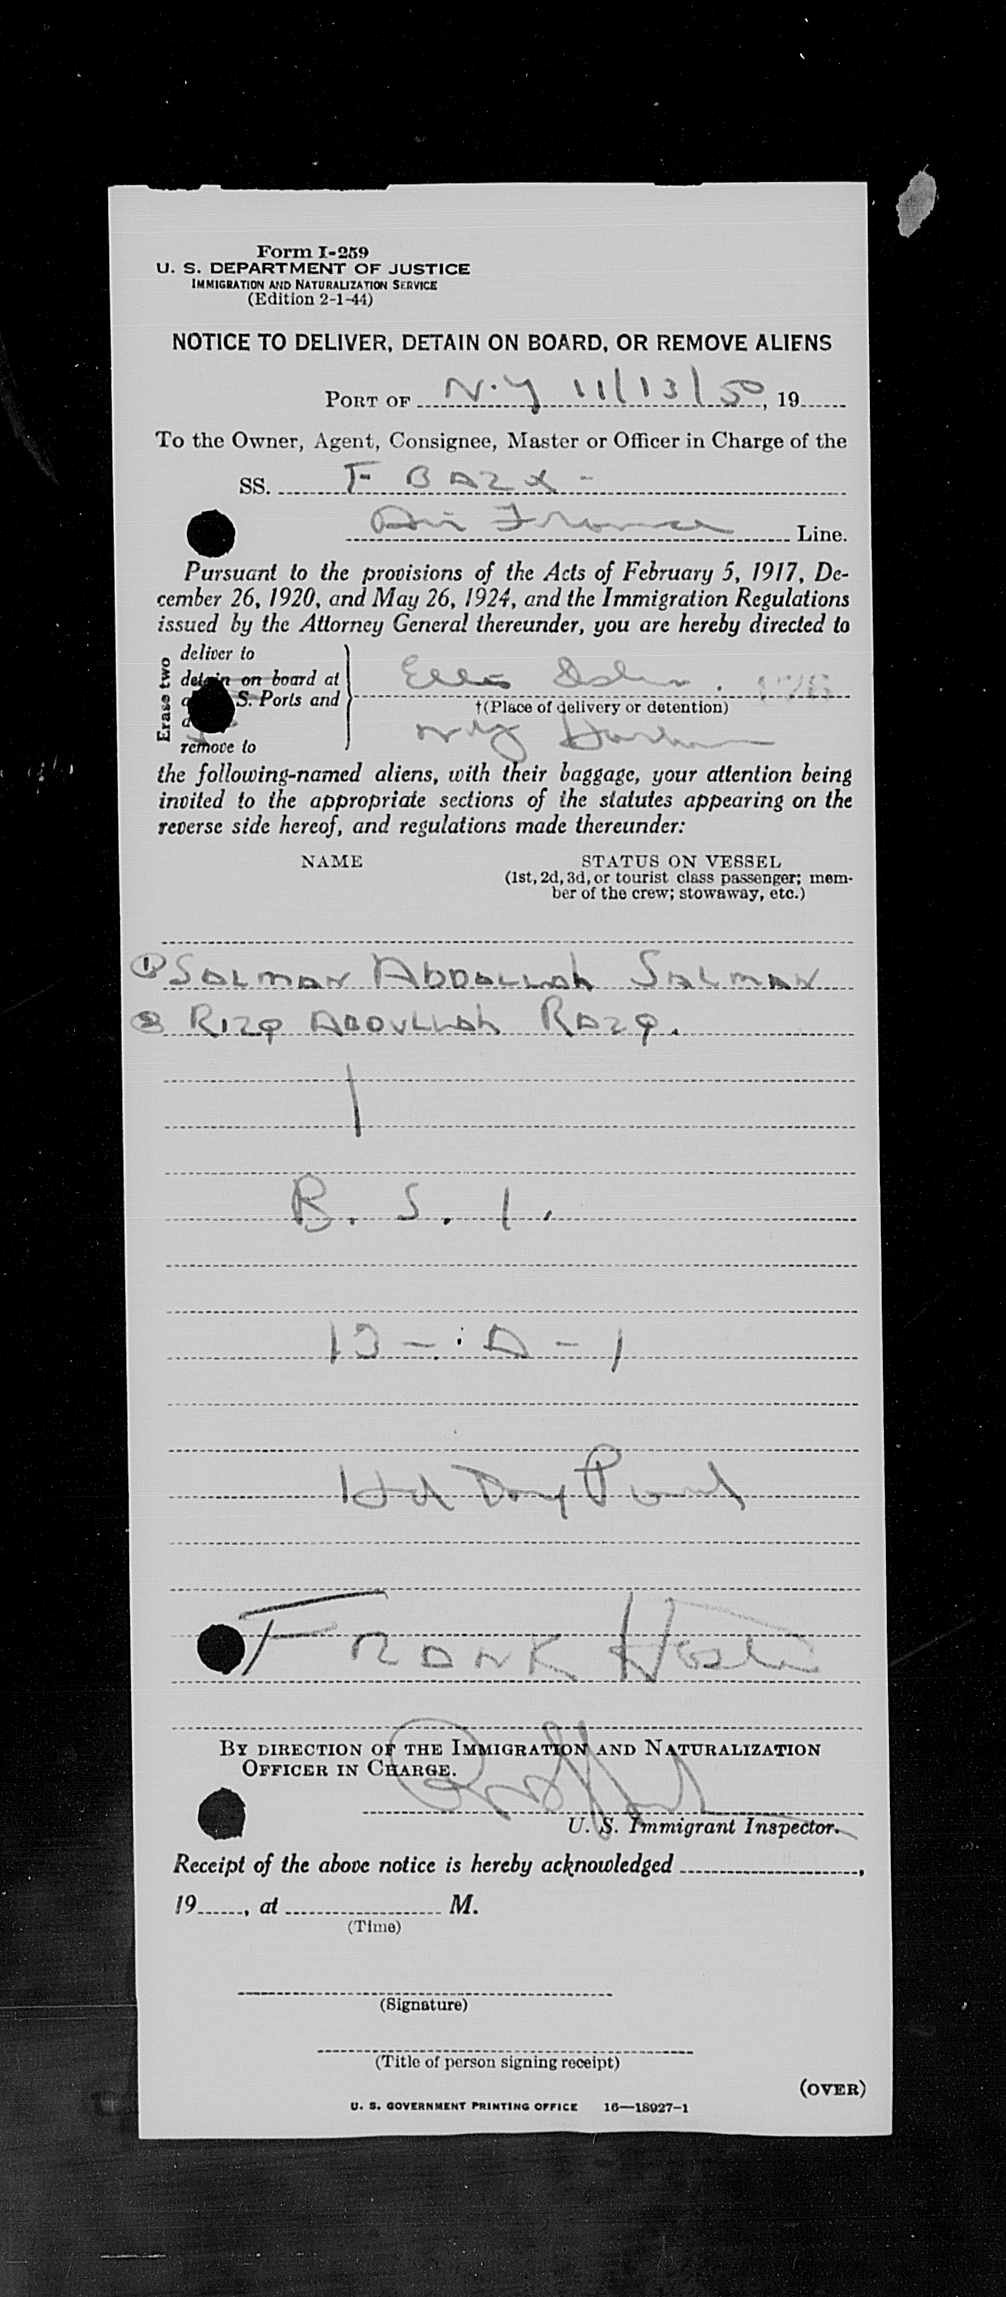 Form I-259
U. S. DEPARTMENT OF JUSTICE
IMMIGRATION AND NATURALIZATION SERVICE
(Edition 2-1-44)
NOTICE TO DELIVER, DETAIN ON BOARD, OR REMOVE ALIENS
PORT OF N.Y 11/13/50, 19
To the Owner, Agent, Consignee, Master or Officer in Charge of the
SS. F BAZX -
Air France Line.
Pursuant to the provisions of the Acts of February 5, 1917, De-
cember 26, 1920, and May 26, 1924, and the Immigration Regulations
issued by the Attorney General thereunder, you are hereby directed to
Erase two
deliver to
detain on board at
S. Ports and
remove to
Ellis Island.
†(Place of delivery or detention)
N Y Harbor
the following-named aliens, with their baggage, your attention being
invited to the appropriate sections of the statutes appearing on the
reverse side hereof, and regulations made thereunder:
NAME STATUS ON VESSEL
(1st, 2d, 3d, or tourist class passenger; mem-
ber of the crew; stowaway, etc.)
① SALMAN ABDALLAH SALMAN
② RIZQ ABDULLAH RAZQ.
B. S. I.
FRANK
BY DIRECTION OF THE IMMIGRATION AND NATURALIZATION
OFFICER IN CHARGE.
U. S. Immigrant Inspector.
Receipt of the above notice is hereby acknowledged ,
19 , at M.
(Time)
(Signature)
(Title of person signing receipt)
(OVER)
U. S. GOVERNMENT PRINTING OFFICE 16—18927-1